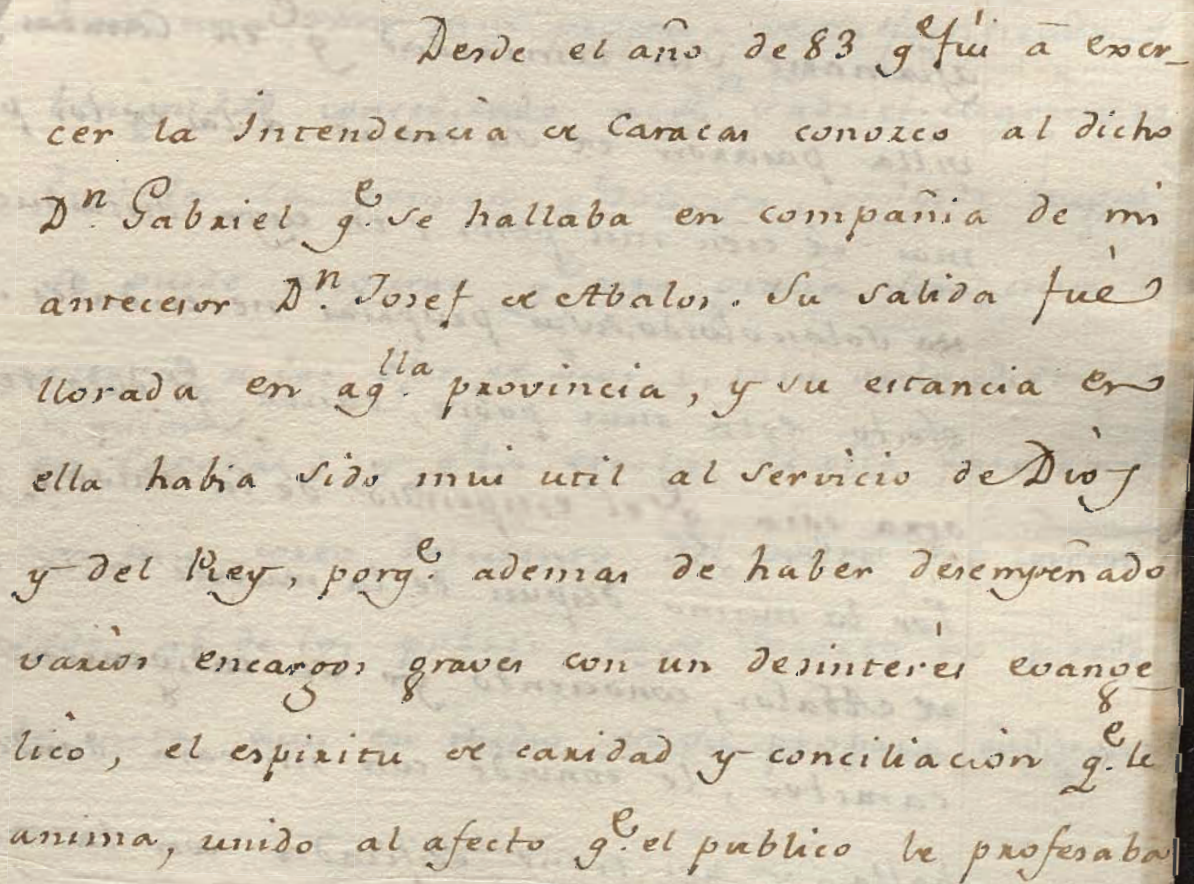 Desde el año de 83 qᵉ fuí á exer-
cer la Intendencia de Caracas conozco al dicho
Dⁿ. Gabriel qᵉ. se hallaba en compañia de mi
antecesor Dⁿ. Josef de Abalos. Su salida fué
llorada en aqˡˡᵃ. provincia, y su estancia en
ella habia sido mui util al servicio de Dios
y del Rey, porqᵉ. ademas de haber desempeñado
varios encargos graves con un desinterés evange
lico, el espiritu de caridad y conciliación qᵉ. le
anima, unido al afecto qᵉ. el publico le profesaba